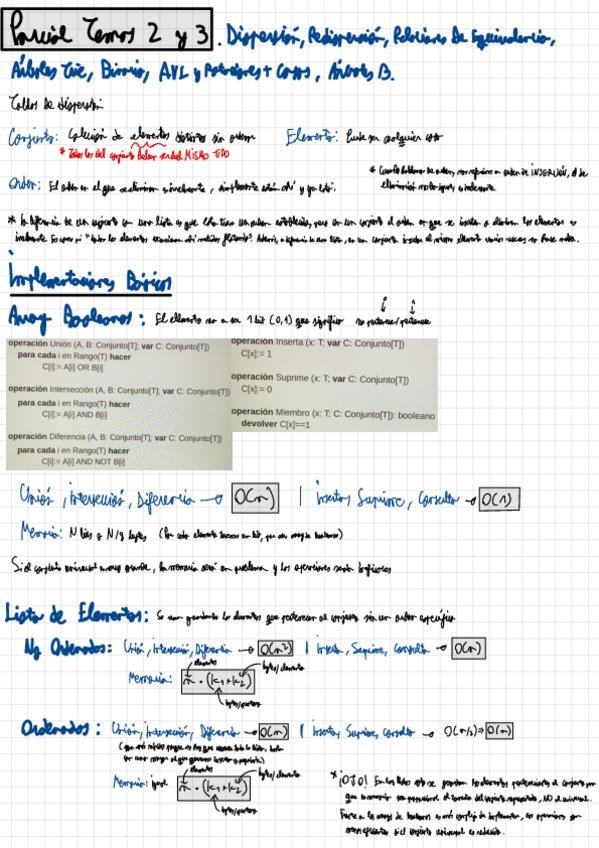 Parcial Temas 2 y 3. Dispersión, Redispersión, Relaciones De Equivalencia,
Árboles Trie, Binario, AVL y Rotaciones + Casos, Árboles B.
Tablas de dispersión
Conjunto: Colección de elementos distintos sin orden Elemento: Puede ser cualquier cosa
* Todos los del conjunto deben ser del MISMO TIPO
Orden: El orden en el que se eliminan es irrelevante, simplemente están ahí y ya está.
* Cuando hablamos de orden, nos referimos a orden de INSERCIÓN, el de
eliminación
* La diferencia de un conjunto con una lista es que esta tiene un orden establecido, pero en un conjunto el orden en que se insertan o eliminan los elementos es
irrelevante. Es como si "todos los elementos estuvieran ahí metidos flotando". Además, a diferencia de una lista, en un conjunto insertar el mismo elemento varias veces no hace nada.
Implementaciones Básicas
Array Booleanos: El elemento va a ser 1 bit (0,1) que significa no pertenece/pertenece
operación Unión (A, B: Conjunto[T]; var C: Conjunto[T])
para cada i en Rango(T) hacer
C[i]:= A[i] OR B[i]
operación Intersección (A, B: Conjunto[T]; var C: Conjunto[T])
para cada i en Rango(T) hacer
C[i]:= A[i] AND B[i]
operación Diferencia (A, B: Conjunto[T]; var C: Conjunto[T])
para cada i en Rango(T) hacer
C[i]:= A[i] AND NOT B[i]
operación Inserta (x: T; var C: Conjunto[T])
C[x]:= 1
operación Suprime (x: T; var C: Conjunto[T])
C[x]:= 0
operación Miembro (x: T; C: Conjunto[T]): booleano
devolver C[x]==1
Unión, Intersección, Diferencia → O(n) | Inserta, Suprime, Consulta → O(1)
Memoria: N bits o N/8 bytes (Por cada elemento tenemos un bit, que es un array de booleanos)
Si el conjunto universal es muy grande, la memoria será un problema y las operaciones serán ineficaces
Lista de Elementos: Se van guardando los elementos que pertenecen al conjunto sin un orden específico
No Ordenados: Unión, Intersección, Diferencia → O(n²) | Inserta, Suprime, Consulta → O(n)
elementos
Memoria: n · (k₁+k₂) bytes/elemento
bytes/puntero
Ordenados: Unión, Intersección, Diferencia → O(n) | Inserta, Suprime, Consulta → O(n/2) ⇒ O(n)
elementos
Memoria: igual n · (k₁+k₂) bytes/elemento
bytes/puntero
* ¡OJO! En las listas solo se guardan los elementos pertenecientes al conjunto por
que la memoria es proporcional al tamaño del conjunto representado, NO al universal.
Frente a los arrays de booleanos es más complejo de implementar, las operaciones son
menos eficientes si el conjunto universal es reducido.